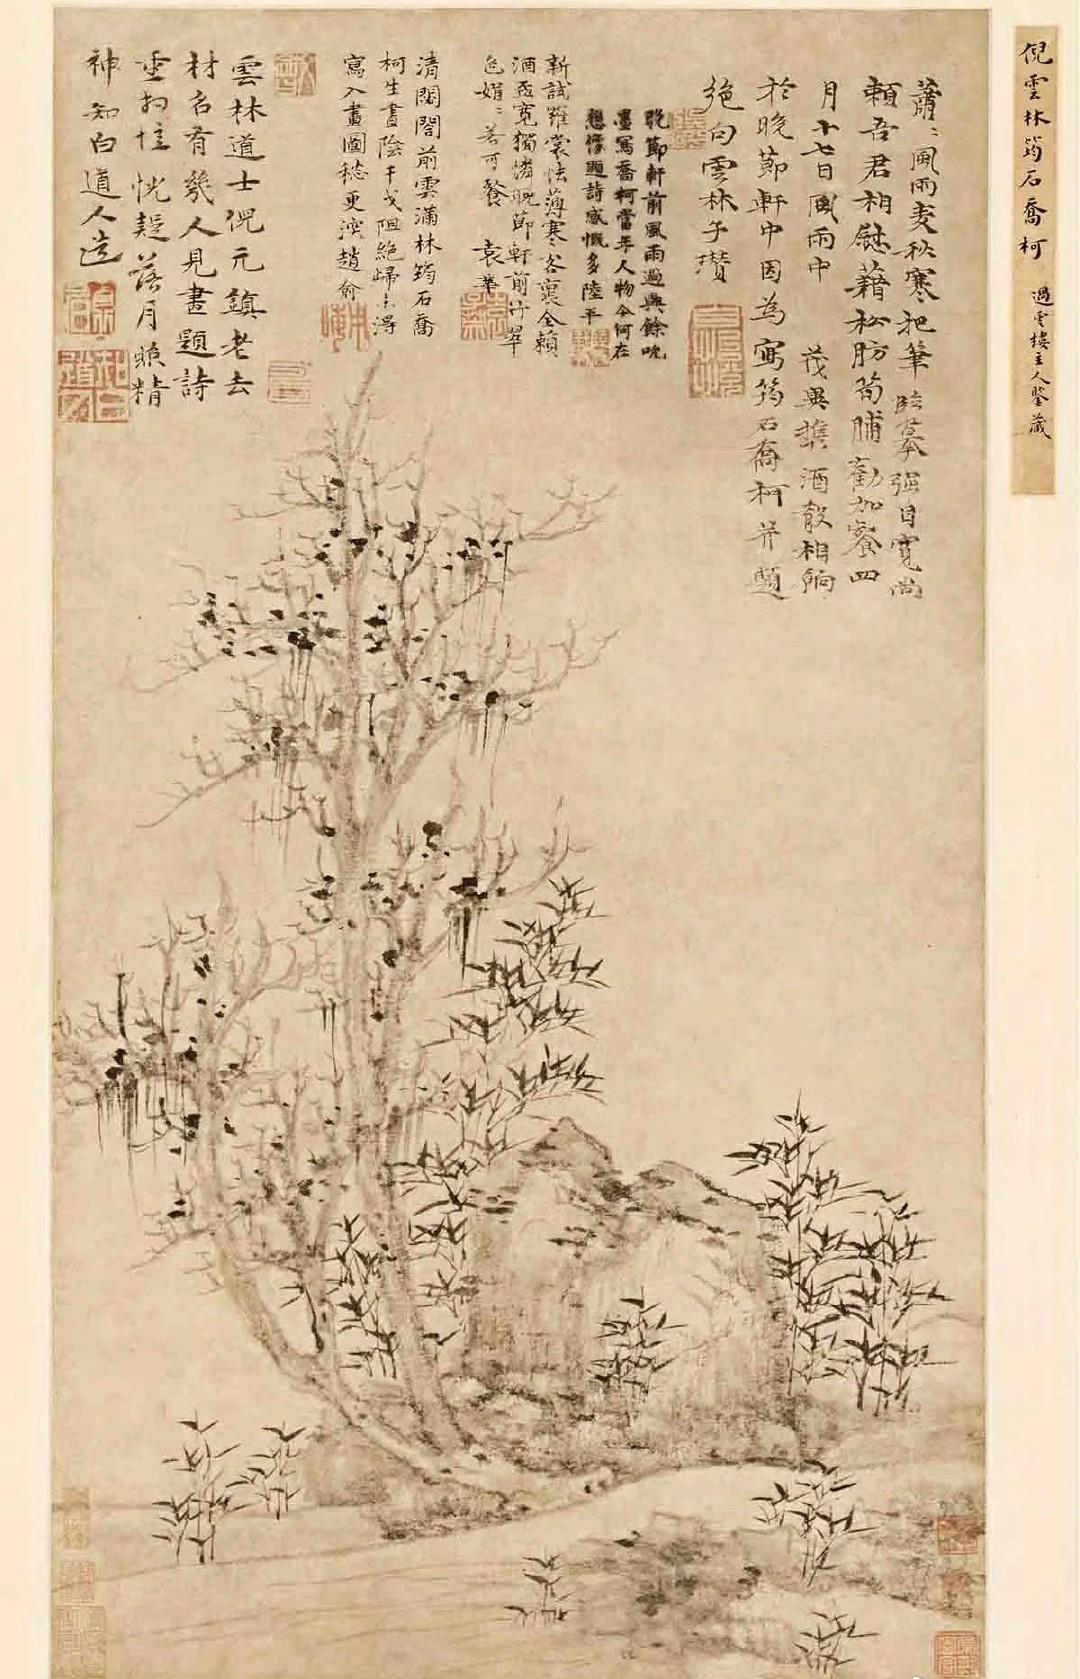 倪雲林筠石喬柯 過雲樓主人鑒藏
蕭〻風雨麦秋寒把筆臨摹強自寬尚
頼吾君相慰藉松肪筍脯勸加餐四
月十七日風雨中 茂異携酒殽相餉
於晚節軒中因為寫筠石喬柯并題
絶句雲林子瓚
晚節軒前風雨過興餘吮
墨寫喬柯當年人物今何在
想像題詩感慨多陸平
新試羅裳怯薄寒客裏全賴
酒盃寬獨憐晚節軒前竹翠
色娟〻若可餐 袁華
清閟閣前雲滿林筠石喬
柯生晝陰干戈阻絶歸未得
寫入畫圖愁更深趙俞
雲林道士倪元鎮老去
材名有幾人見畫題詩
重 恍疑落月照精
神知白道人造